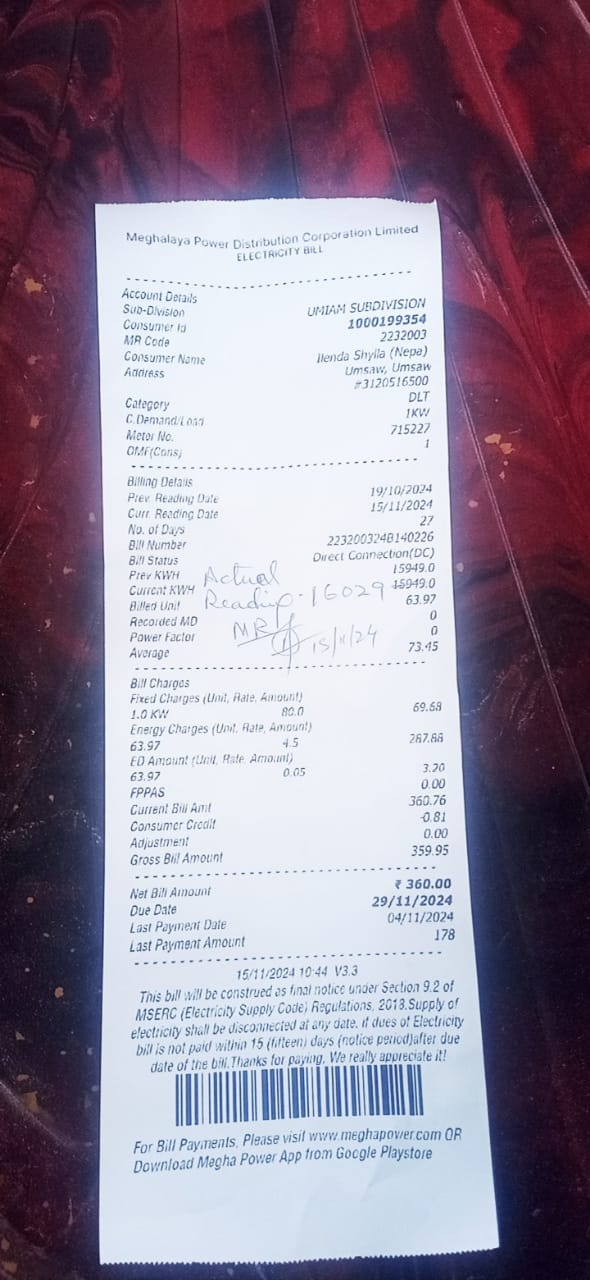 Meghalaya Power Distribution Corporation Limited
ELECTRICITY BILL
Account Details
Sub-Division UMIAM SUBDIVISION
Consumer Id 1000199354
MR Code 2232003
Consumer Name Ilenda Shylla (Nepa)
Address Umsaw, Umsaw
#3120516500
Category DLT
C.Demand/Load 1KW
Meter No. 715227
OMF(Cons) 1
Billing Details
Prev. Reading Date 19/10/2024
Curr. Reading Date 15/11/2024
No. of Days 27
Bill Number 223200324B140226
Bill Status Direct Connection(DC)
Prev KWH 15949.0
Current KWH 15949.0
Billed Unit 63.97
Recorded MD 0
Power Factor 0
Average 73.45
Actual
Reading - 16029
MR 15/11/24
Bill Charges
Fixed Charges (Unit, Rate, Amount)
1.0 KW 80.0 69.68
Energy Charges (Unit, Rate, Amount)
63.97 4.5 287.88
ED Amount (Unit, Rate, Amount)
63.97 0.05 3.20
FPPAS 0.00
Current Bill Amt 360.76
Consumer Credit -0.81
Adjustment 0.00
Gross Bill Amount 359.95
Net Bill Amount ₹ 360.00
Due Date 29/11/2024
Last Payment Date 04/11/2024
Last Payment Amount 178
15/11/2024 10:44 V3.3
This bill will be construed as final notice under Section 9.2 of
MSERC (Electricity Supply Code) Regulations, 2018.Supply of
electricity shall be disconnected at any date, if dues of Electricity
bill is not paid within 15 (fifteen) days (notice period)after due
date of the bill.Thanks for paying, We really appreciate it!
For Bill Payments, Please visit www.meghapower.com OR
Download Megha Power App from Google Playstore